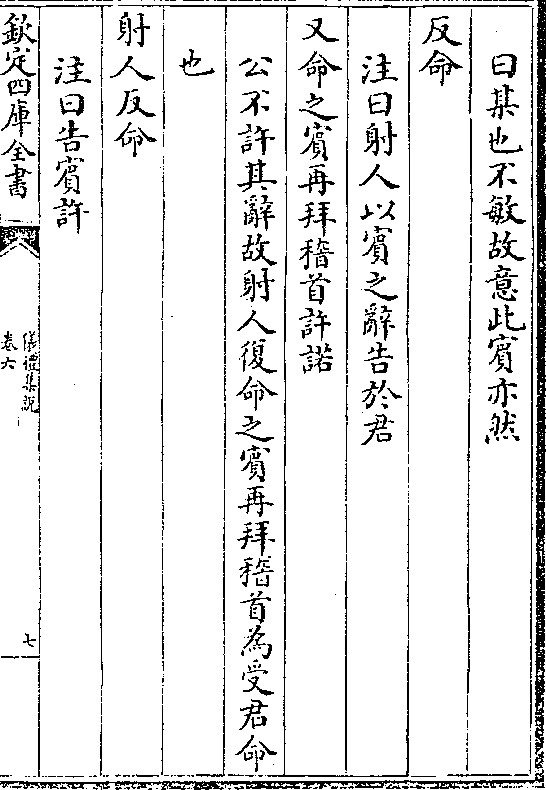 曰某也不敏故意此賓亦然
反命
注曰射人以賓之辭告於君
又命之賓再拜稽首許諾
公不許其辭故射人復命之賓再拜稽首為受君命
也
射人反命
注曰告賓許
欽定四庫全書
儀禮集說
卷六
七